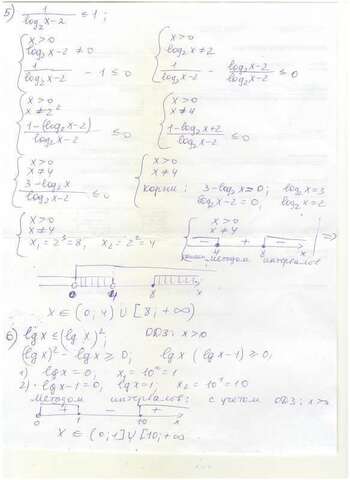 5) 1/(log₂x-2) ≤ 1;
{ x>0 { x>0
log₂x-2 ≠ 0 log₂x ≠ 2
1/(log₂x-2) - 1 ≤ 0 1/(log₂x-2) - (log₂x-2)/(log₂x-2) ≤ 0
{ x>0 { x>0
x≠2² x≠4
(1-(log₂x-2))/(log₂x-2) ≤ 0 (1-log₂x+2)/(log₂x-2) ≤ 0
{ x>0 { x>0
x≠4 x≠4
(3-log₂x)/(log₂x-2) ≤ 0 корни: 3-log₂x=0; log₂x=3
log₂x-2=0, log₂x=2
{ x>0 { x>0
x≠4 x≠4
x₁=2³=8, x₂=2²=4 - + - ⇒
4 8 x
методом интервалов
0 4 8 x
x ∈ (0; 4) ∪ [8; +∞)
6) lgx ≤ (lgx)²; ОДЗ: x>0
(lgx)² - lgx ≥ 0; lgx (lgx-1) ≥ 0;
1) lgx=0, x₁=10⁰=1
2) lgx-1=0, lgx=1; x₂=10¹=10
методом интервалов: с учетом ОДЗ: x>0
+ - +
0 1 10 x
x ∈ (0;1] ∪ [10;+∞